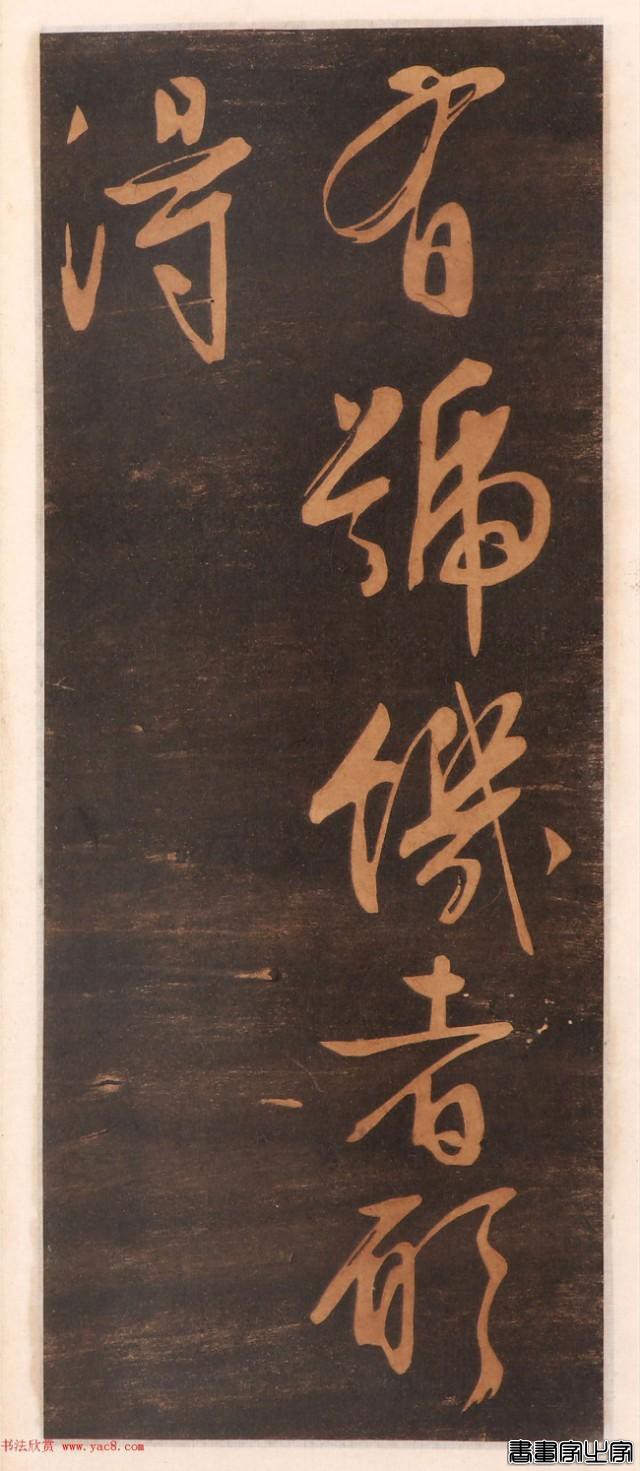 有號饑者願
得
书法欣赏 www.yac8.com
書畫家之家